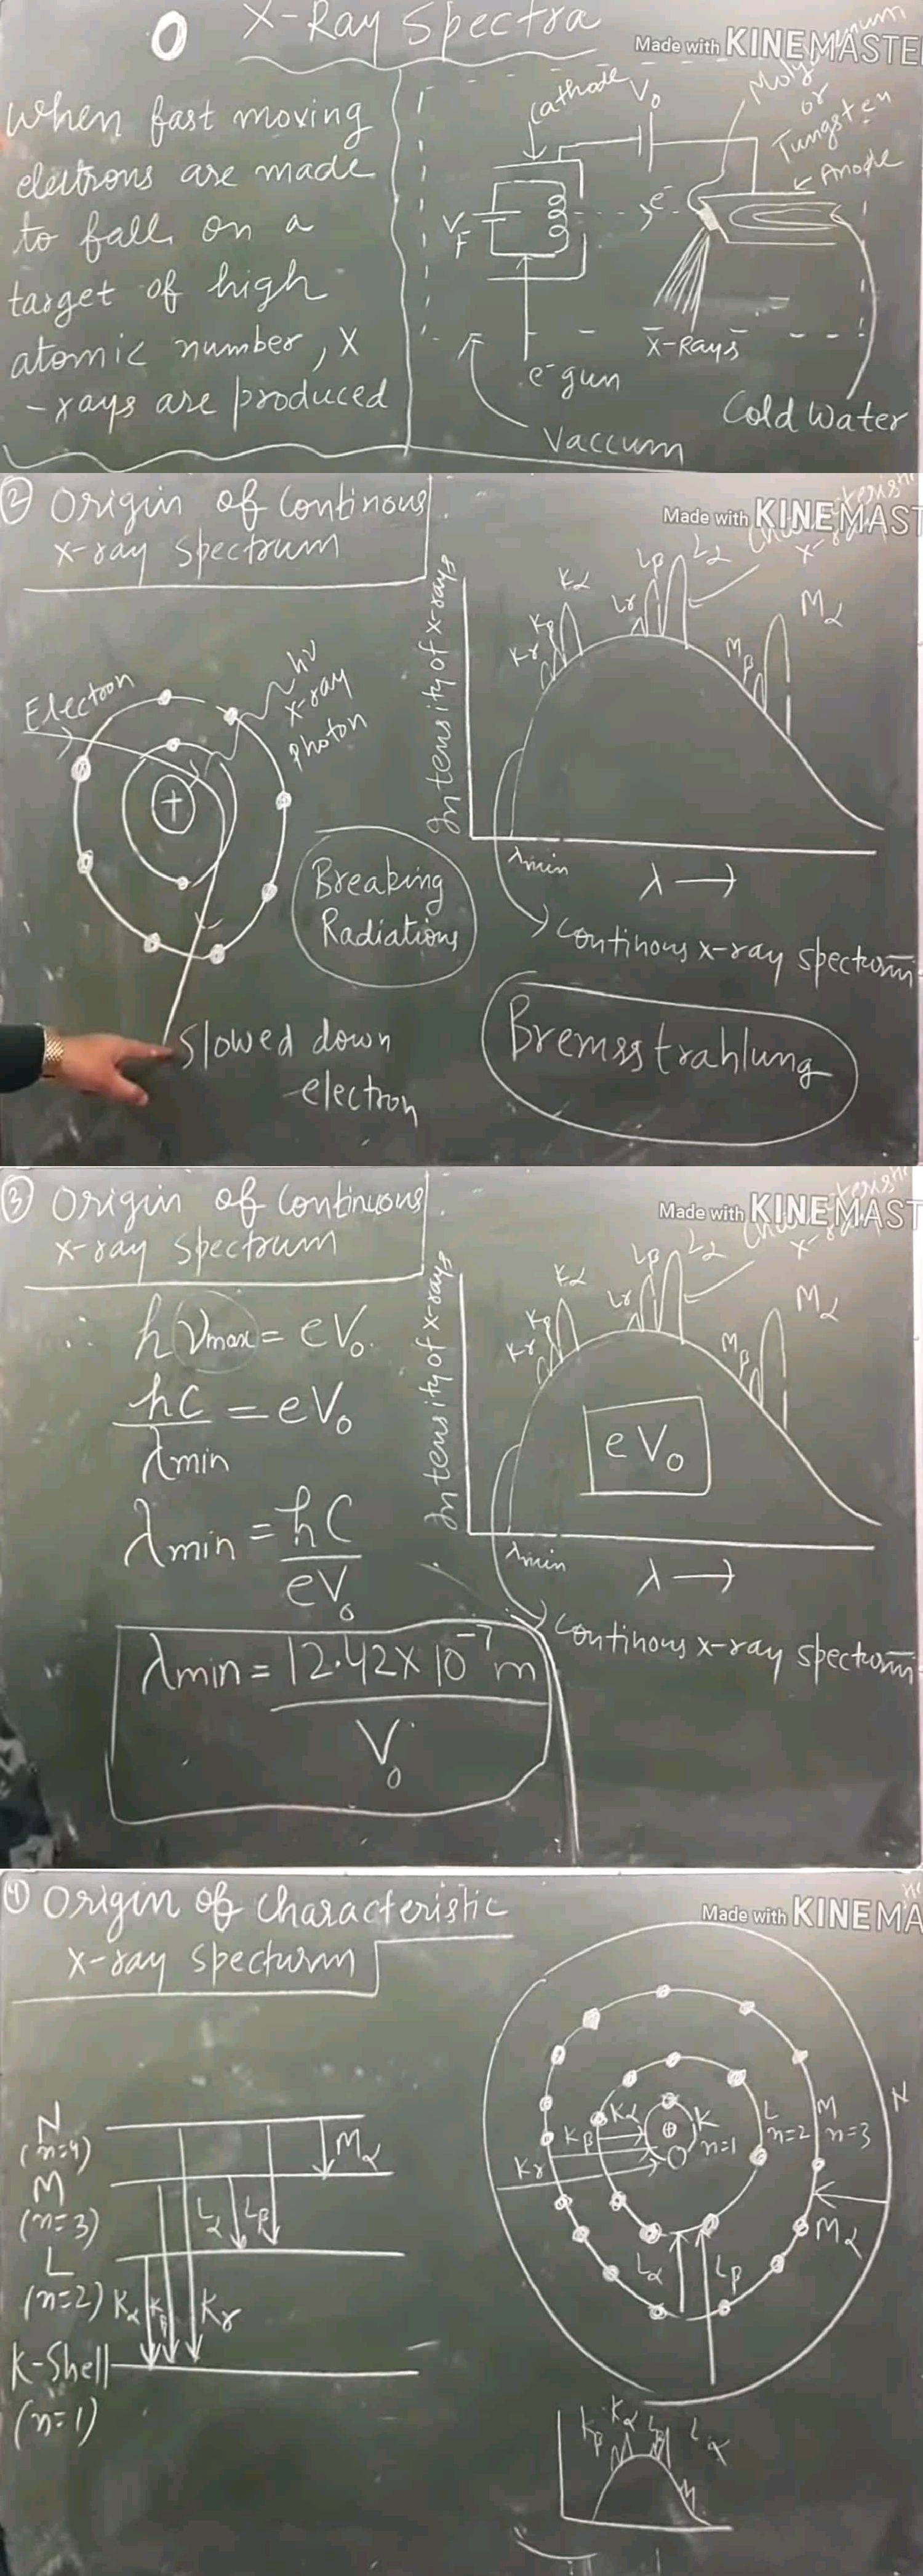 X-Ray Spectra
Made with KINEMASTE
When fast moving
electrons are made
to fall on a
target of high
atomic number, X
-rays are produced
cathode
V₀
or
Tungsten
Anode
e⁻
V
F
X-Rays
e⁻ gun
Cold Water
Vaccum
② Origin of Continous
x-ray spectrum
Made with KINEMAST
Electron
hν
x-ray
photon
+
Breaking
Radiations
Slowed down
-electron
Intensity of x-rays
Kγ
Kβ
Kα
Lγ
Lβ
Lα
Mβ
Mα
λmin
λ →
Continous x-ray spectrum
Bremsstrahlung
③ Origin of Continuous
x-ray spectrum
Made with KINEMAST
∴ hνmax = eV₀
hC/λmin = eV₀
λmin = hC/eV₀
λmin = 12.42 × 10⁻⁷ m
V₀
Intensity of x-rays
Kγ
Kβ
Kα
Lγ
Lβ
Lα
Mβ
Mα
eV₀
λmin
λ →
Continous x-ray spectrum
④ Origin of Characteristic
x-ray specturm
Made with KINEMA
N
(n=4)
M
(n=3)
L
(n=2)
K-Shell
(n=1)
Mα
Lα
Lβ
Kα
Kβ
Kγ
Kα
Kβ
Kγ
K
n=1
L
n=2
M
n=3
N
Mα
Lα
Lβ
Kβ
Kα
Lβ
Lα
M